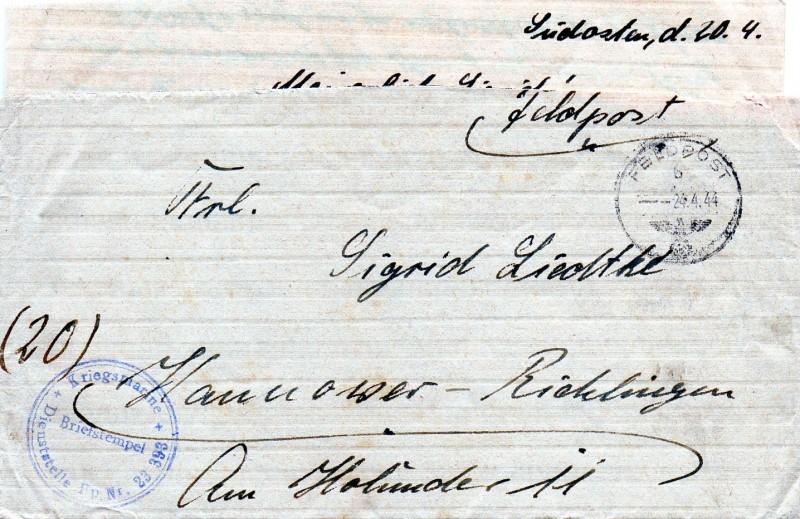 Südosten, d. 20. 4.
Feldpost
FELDPOST
b
24.4.44
Frl.
Sigrid Liedtke
(20)
Hannover - Ricklingen
Am Holunder 11
Kriegsmarine
Briefstempel
Dienststelle Fp. Nr. 23 393